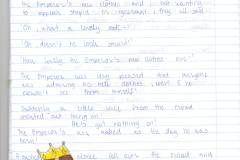 the Emperor's new clothes and, not wanting
to appear stupid or ignorant, they all said:-
'Oh, what a lovely suit!'
'Oh doesn't he look smart!'
'How lovely the Emperor's new clothes are!'
The Emperor was very pleased and
was admiring his new clothes,
see them himself!
Suddenly a little voice from the crowd
shouted out
He's got nothing on!
The Emperor's as naked as the day he was
born!
silence fell over the crowd and